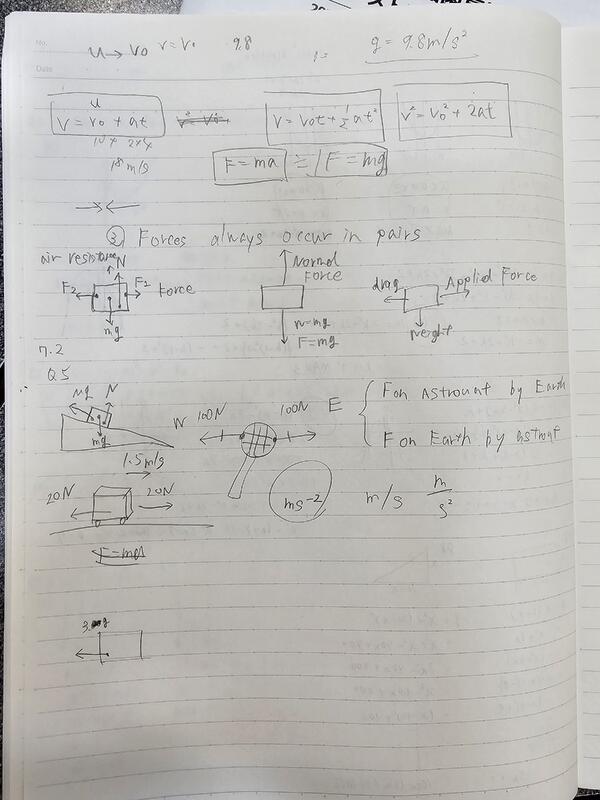 No.
Date
u → v₀ v = v₀ 9.8 g = 9.8m/s²
u
V = V₀ + at
V = V₀t + ½at²
V² = V₀² + 2at
18 m/s
F = ma ≒ F = mg
② Forces always occur in pairs
air resistance N
F₂ F₂ Force
mg
Normal Force
n = mg
F = mg
drag Applied Force
weight
7.2
Q5
N
mg
W 100N 100N E
F on Astrount by Earth
F on Earth by astrout
1.5m/s
20N 20N
ms⁻² m/s m/s²
F = ma